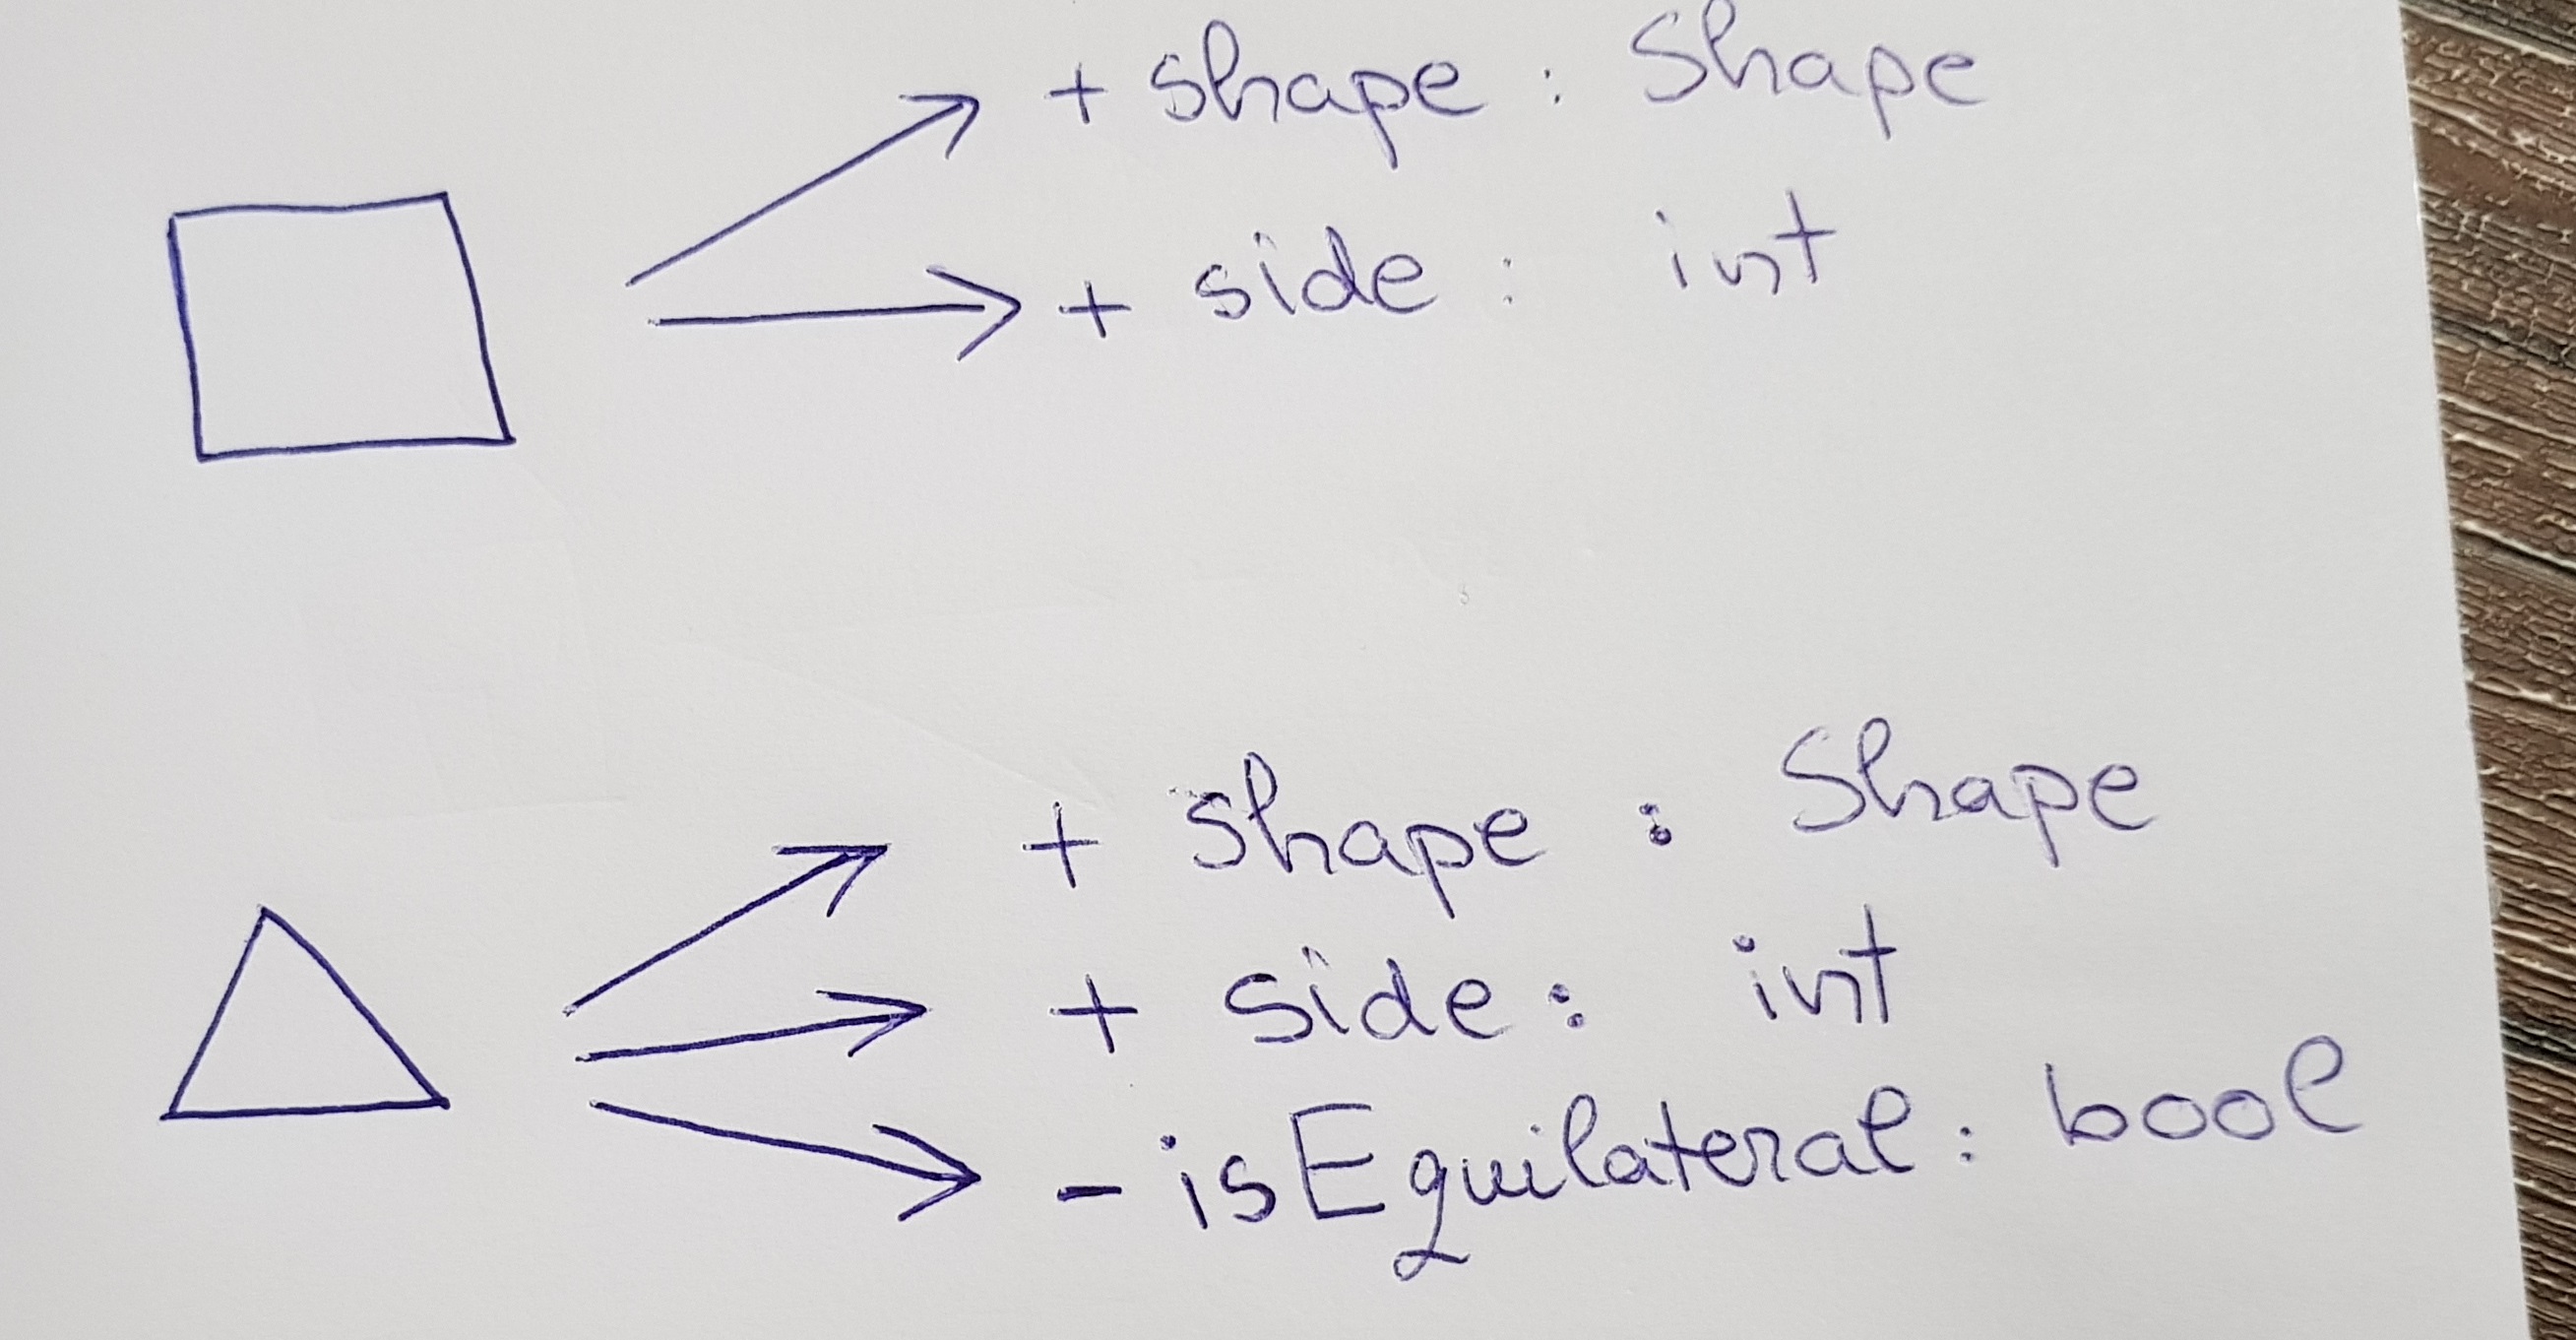 + shape : Shape
+ side : int
+ shape : Shape
+ side : int
- isEquilateral : bool